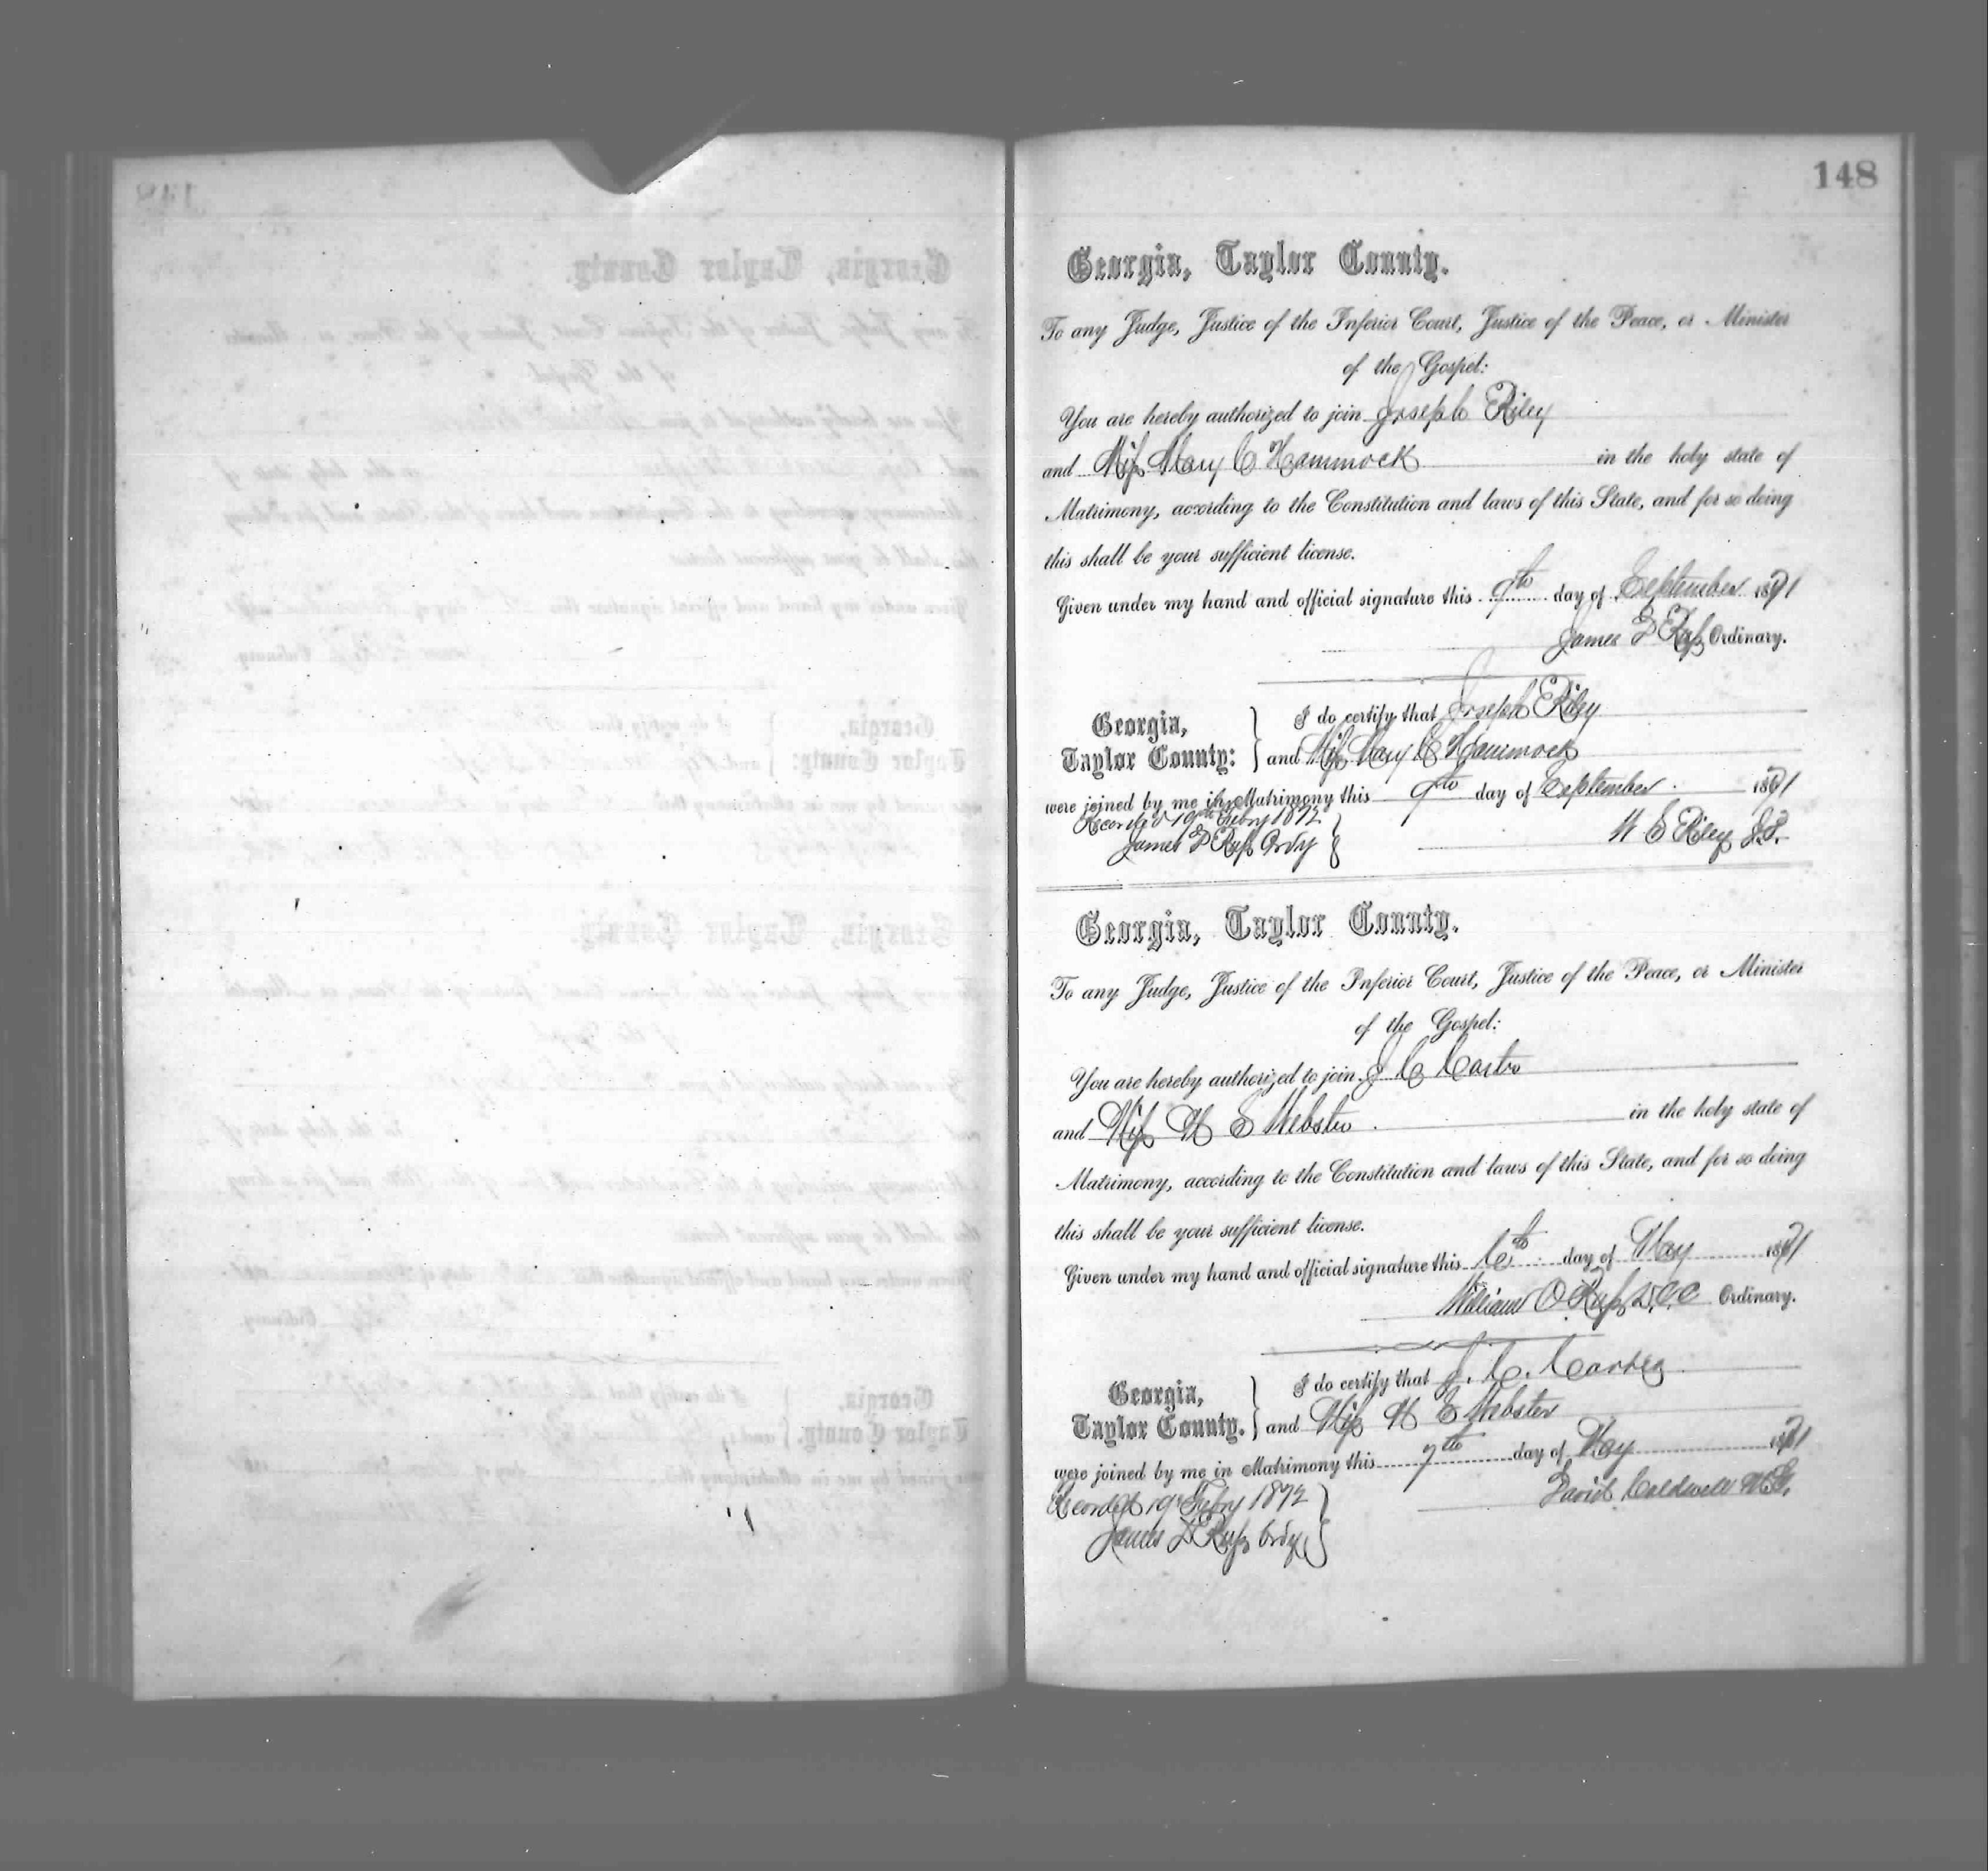 148
Georgia, Taylor County.
To any Judge, Justice of the Inferior Court, Justice of the Peace, or Minister
of the Gospel:
You are hereby authorized to join Joseph Riley
and Miss Mary C Hammock in the holy state of
Matrimony, according to the Constitution and laws of this State, and for so doing
this shall be your sufficient license.
Given under my hand and official signature this 9th day of September 1871
James D Russ Ordinary.
Georgia,
Taylor County:
I do certify that Joseph Riley
and Miss Mary C Hammock
were joined by me in Matrimony this 9th day of September 1871
Recorded 19th Febry 1872
James D Russ Ordy
W S Riley J.P.
Georgia, Taylor County.
To any Judge, Justice of the Inferior Court, Justice of the Peace, or Minister
of the Gospel:
You are hereby authorized to join J C Carter
and Miss M E Webster in the holy state of
Matrimony, according to the Constitution and laws of this State, and for so doing
this shall be your sufficient license.
Given under my hand and official signature this 6th day of May 1871
William O Russ D.C.C Ordinary.
Georgia,
Taylor County.
I do certify that J. C. Carter
and Miss M E Webster
were joined by me in Matrimony this 7th day of May 1871
Recorded 19th Febry 1872
James D Russ Ordy
David Caldwell M.G.